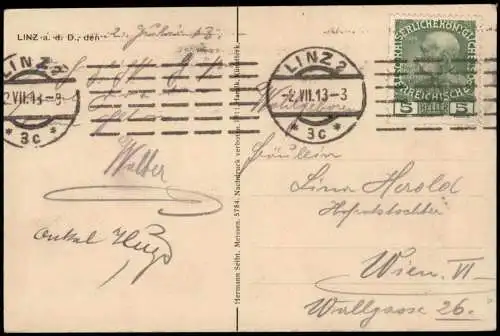 LINZ a. d. D., den 2. Juli 13.
LINZ 2
-2.VII.13-3
* 3c *
LINZ 2
-2.VII.13-3
* 3c *
KAISERLICHE KÖNIGLICHE
ÖSTERREICHISCHE
5 HELLER 5
Walter
Onkel Hugo
Hermann Seibt, Meissen. 5784. Nachdruck verboten.
Wohlgeboren
Fräulein
Lina Herold
Wien VI
Wallgasse 26.